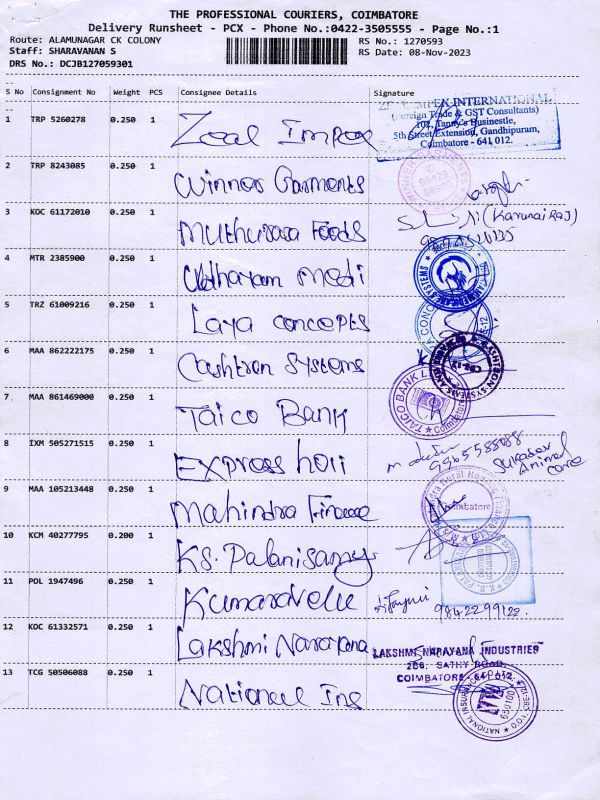 THE PROFESSIONAL COURIERS, COIMBATORE
Delivery Runsheet - PCX - Phone No.:0422-3505555 - Page No.:1
Route: ALAMUNAGAR CK COLONY
Staff: SHARAVANAN S
DRS No.: DCJB127059301
RS No.: 1270593
RS Date: 08-Nov-2023
S No Consignment No Weight PCS Consignee Details Signature
1 TRP 5260278 0.250 1 Zeal Impex
IMPEX INTERNATIONAL
(Foreign Trade & GST Consultants)
102, Tanny's Businestle,
5th Street Extension, Gandhipuram,
Coimbatore - 641 012.
2 TRP 8243085 0.250 1 Winner Garments
3 KOC 61172010 0.250 1 Muthurasa Foods
(Karunai Raj)
4 MTR 2385900 0.250 1 Medi
5 TRZ 61009216 0.250 1 Laya concepts
6 MAA 862222175 0.250 1 Cashtron Systems
7 MAA 861469000 0.250 1 Taico Bank
TAICO BANK
8 IXM 505271515 0.250 1 Express
9965588088
Animal
care
9 MAA 105213448 0.250 1 Mahindra Finance
Coimbatore
10 KCM 40277795 0.200 1 KS. Palanisamy
11 POL 1947496 0.250 1 Kumaravelu
9842299122
12 KOC 61332571 0.250 1 Lakshmi Narayana
LAKSHMI NARAYANA INDUSTRIES
266, SATHY ROAD,
COIMBATORE - 641 012.
13 TCG 50506088 0.250 1 National Ins